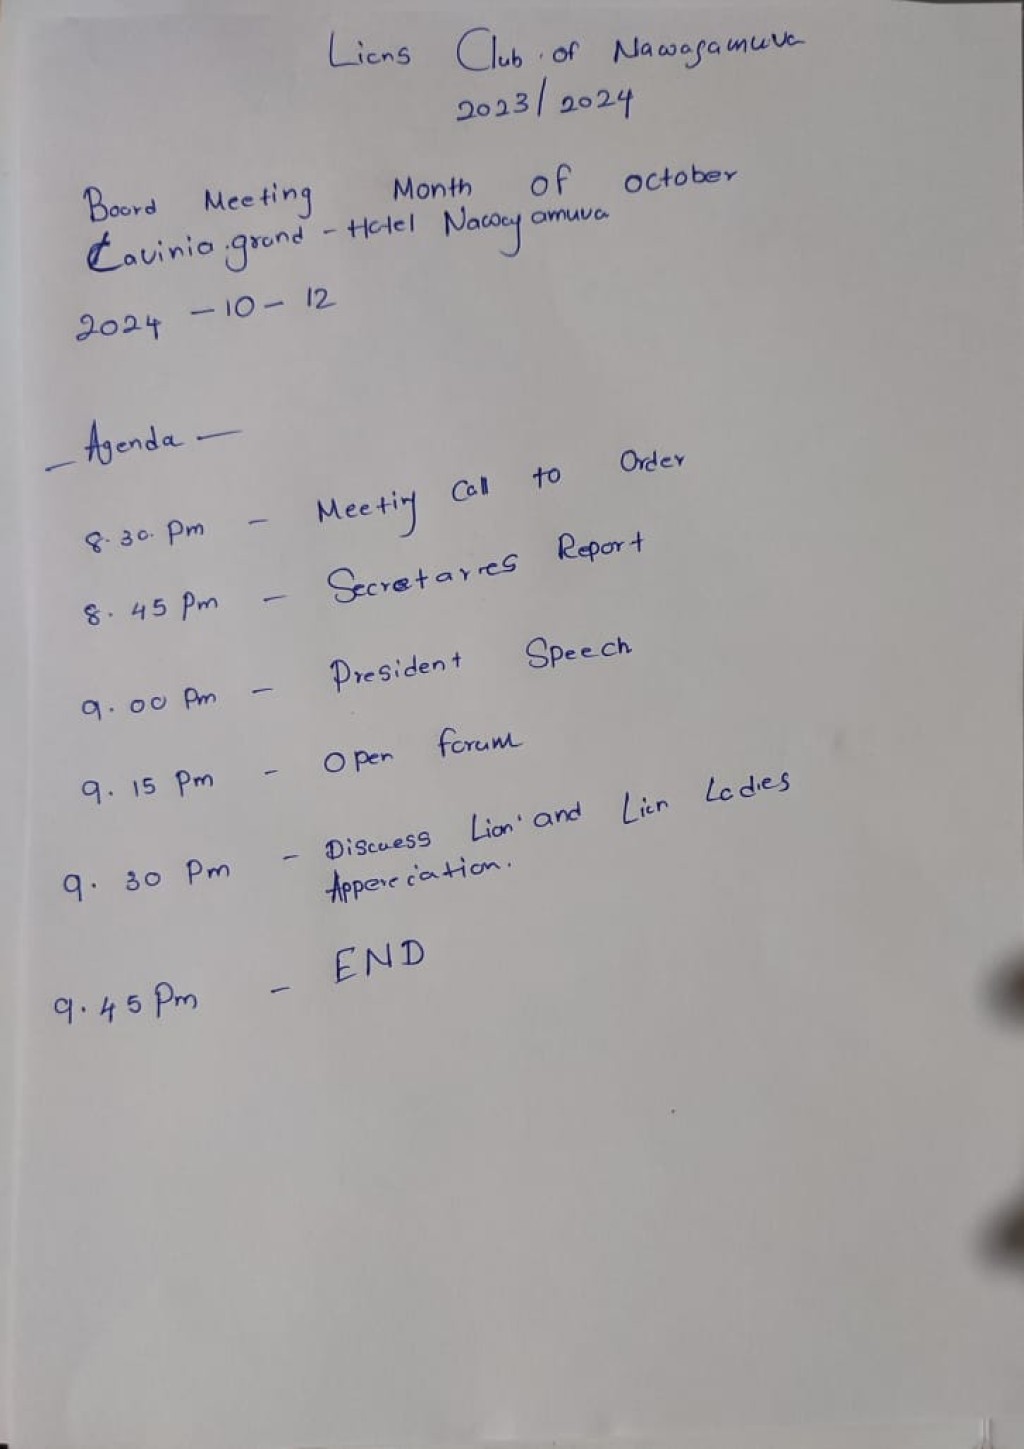 Lions Club of Nawagamuva
2023/2024
Board Meeting Month of october
Lavinia grand - Hotel Nawagamuva
2024 - 10 - 12
- Agenda -
8.30. Pm - Meeting Call to Order
8.45 Pm - Secretarres Report
9.00 Pm - President Speech
9.15 Pm - Open forum
9.30 Pm - Discuess Lion' and Lion Ladies
Appereciation.
9.45 Pm - END